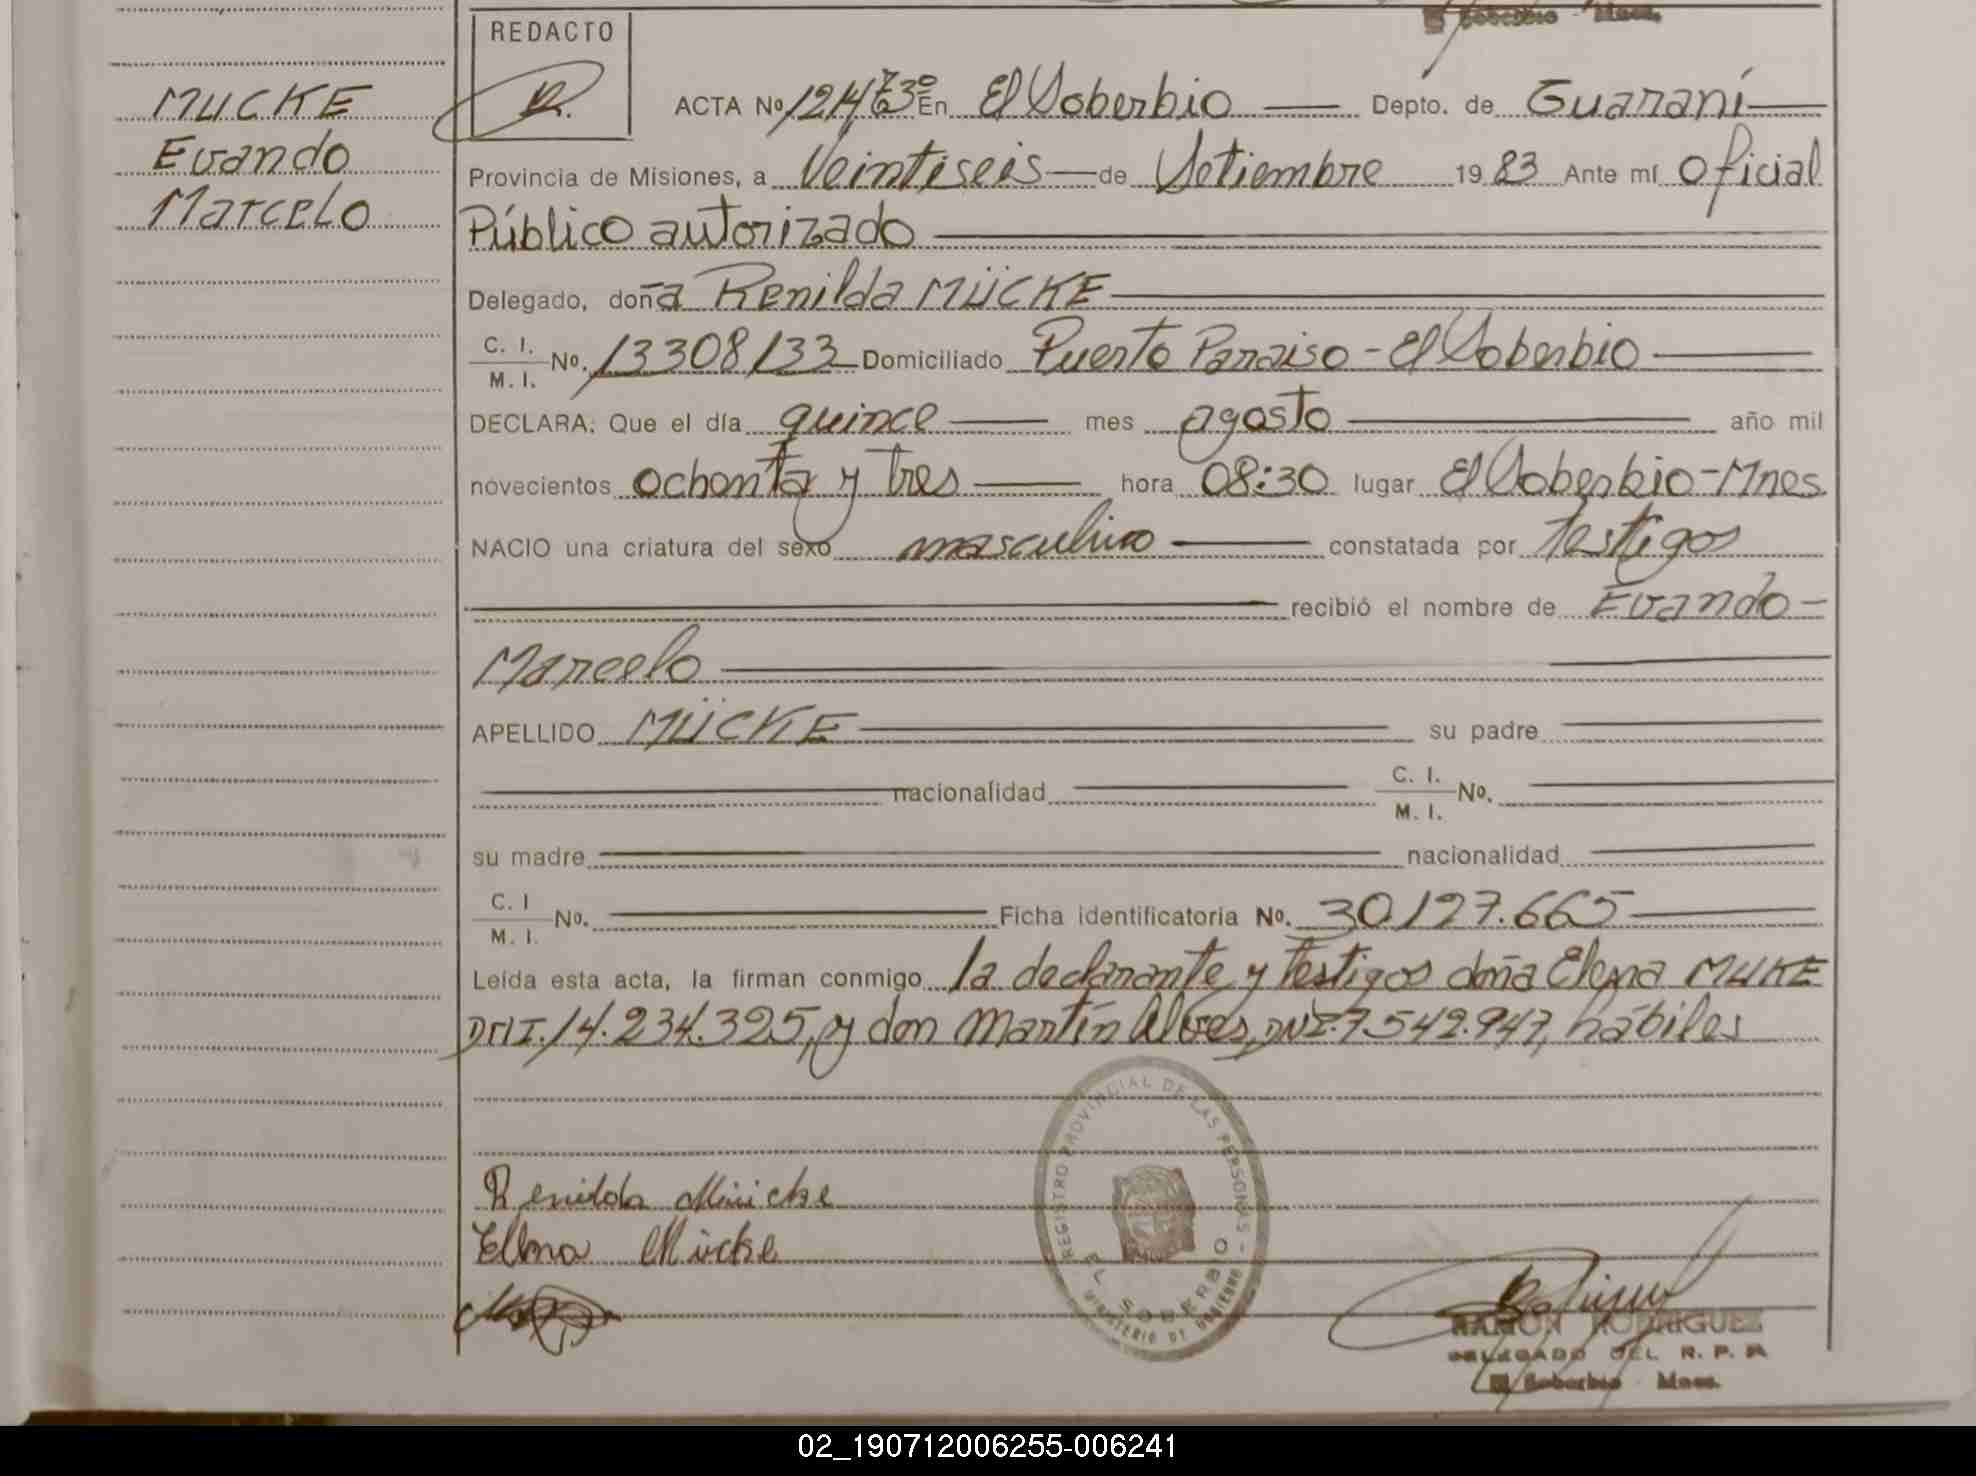 Soberbio - Mnes.
REDACTO
MUCKE
Evando
Marcelo
ACTA Nº 1214 Tº 3º En El Soberbio Depto. de Guaraní
Provincia de Misiones, a Veintiseis de Setiembre 19 83 Ante mí Oficial
Público autorizado
Delegado, doña Renilda MÜCKE
C. I.
M. I. Nº. 13308133 Domiciliado Puerto Paraiso - El Soberbio
DECLARA: Que el día quince mes agosto año mil
novecientos ochenta y tres hora 08:30 lugar El Soberbio-Mnes
NACIO una criatura del sexo masculino constatada por testigos
recibió el nombre de Evando-
Marcelo
APELLIDO MÜCKE su padre
nacionalidad C. I.
M. I. Nº.
su madre nacionalidad
C. I
M. I. Nº. Ficha identificatoria Nº. 30.127.665
Leída esta acta, la firman conmigo la declarante y testigos doña Elena MUKE
DNI. 14.234.325, y don Martín Alves, DNI. 7.542.947, hábiles
Renilda Müicke
Ellena Mücke
REGISTRO PROVINCIAL DE LAS PERSONAS -
EL SOBERBIO
MINISTERIO DE GOBIERNO
RAMON RODRIGUEZ
DELEGADO DEL R. P. P.
El Soberbio - Mnes.
02_190712006255-006241